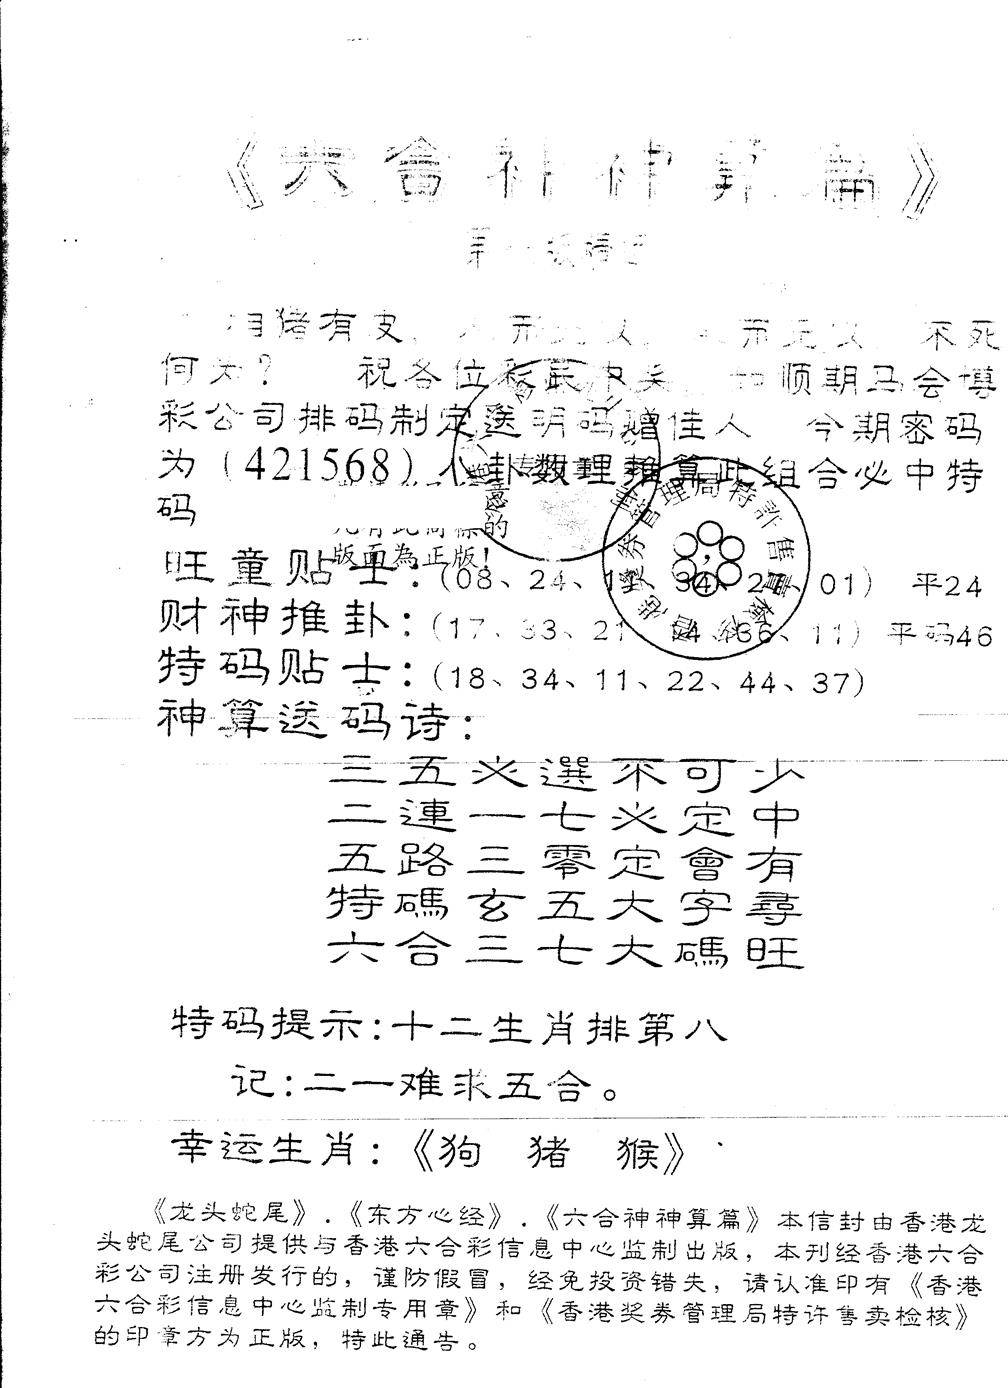 《六合神神算篇》
相猪有皮 不死
何为？ 祝各位彩民中 顺期马会博
彩公司排码制定送明码赠佳人 今期密码
为（421568）八卦数理推算此组合必中特
码
版面為正版！
旺童贴士：（08、24、 34、 01） 平24
财神推卦：（17、33、21 36、11）平码46
特码贴士：（18、34、11、22、44、37）
神算送码诗：
三五必選不可少
二連一七必定中
五路三零定會有
特碼玄五大字尋
六合三七大碼旺
特码提示：十二生肖排第八
记：二一难求五合。
幸运生肖：《狗 猪 猴》
《龙头蛇尾》.《东方心经》.《六合神神算篇》本信封由香港龙
头蛇尾公司提供与香港六合彩信息中心监制出版，本刊经香港六合
彩公司注册发行的，谨防假冒，经免投资错失，请认准印有《香港
六合彩信息中心监制专用章》和《香港奖券管理局特许售卖检核》
的印章方为正版，特此通告。